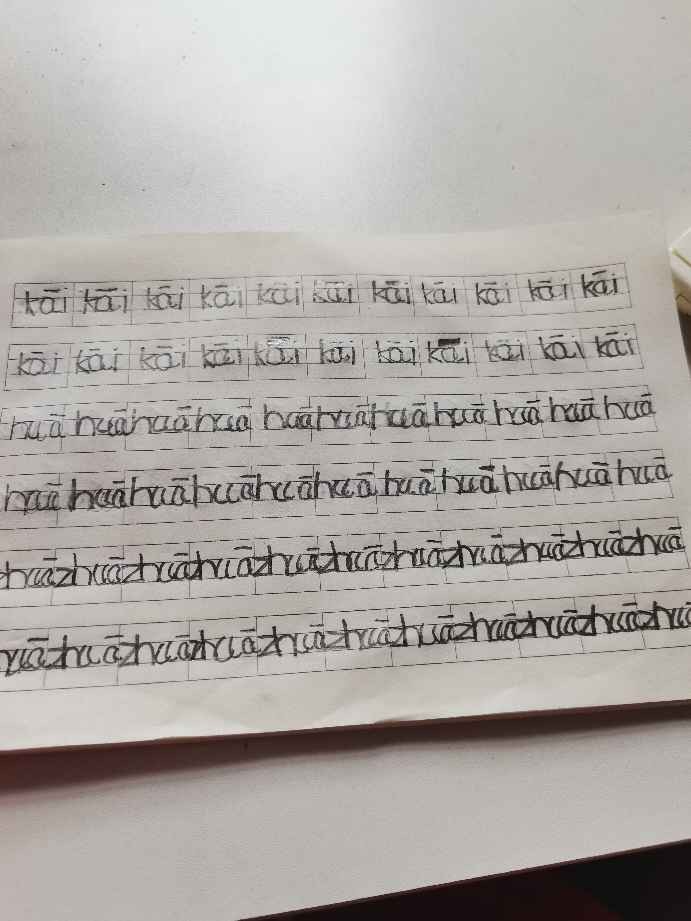 kāi kāi kāi kāi kāi kāi kāi kāi kāi kāi kāi
kāi kāi kāi kāi kāi kāi kāi kāi kāi kāi kāi
huā huā huā huā huā huā huā huā huā huā huā
huā huā huā huā huā huā huā huā huā huā huā
zhuā zhuā zhuā zhuā zhuā zhuā zhuā zhuā zhuā zhuā
zhuā zhuā zhuā zhuā zhuā zhuā zhuā zhuā zhuā